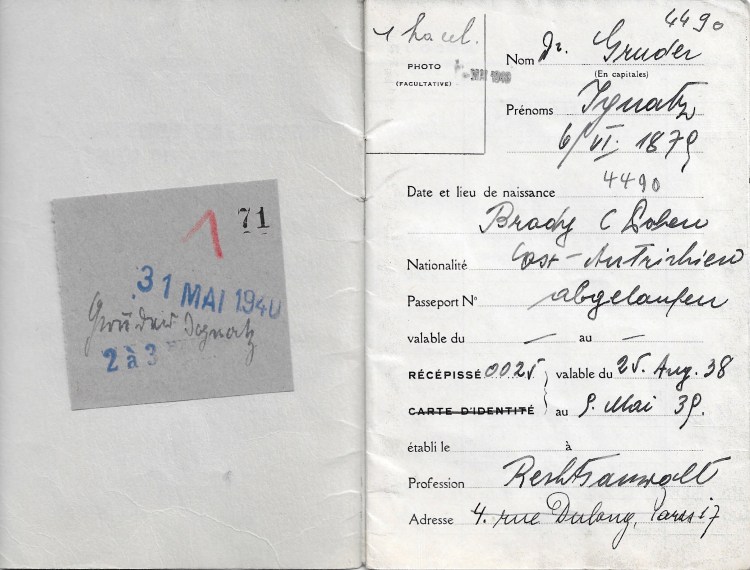 71
1
31 MAI 1940
Ignatz
2 à 3
4490
PHOTO
(FACULTATIVE)
MAI
Nom Dr. Gruder
(En capitales)
Prénoms Ignatz
6/VI. 1879
Date et lieu de naissance 4490
Brody
Nationalité Autrichien
Passeport N° abgelaufen
valable du — au —
RÉCÉPISSÉ 0025 valable du 25. Aug. 38
CARTE D'IDENTITÉ au 9. Mai 39.
établi le à
Profession Rechtsanwalt
Adresse 4. rue Dulong, Paris 17